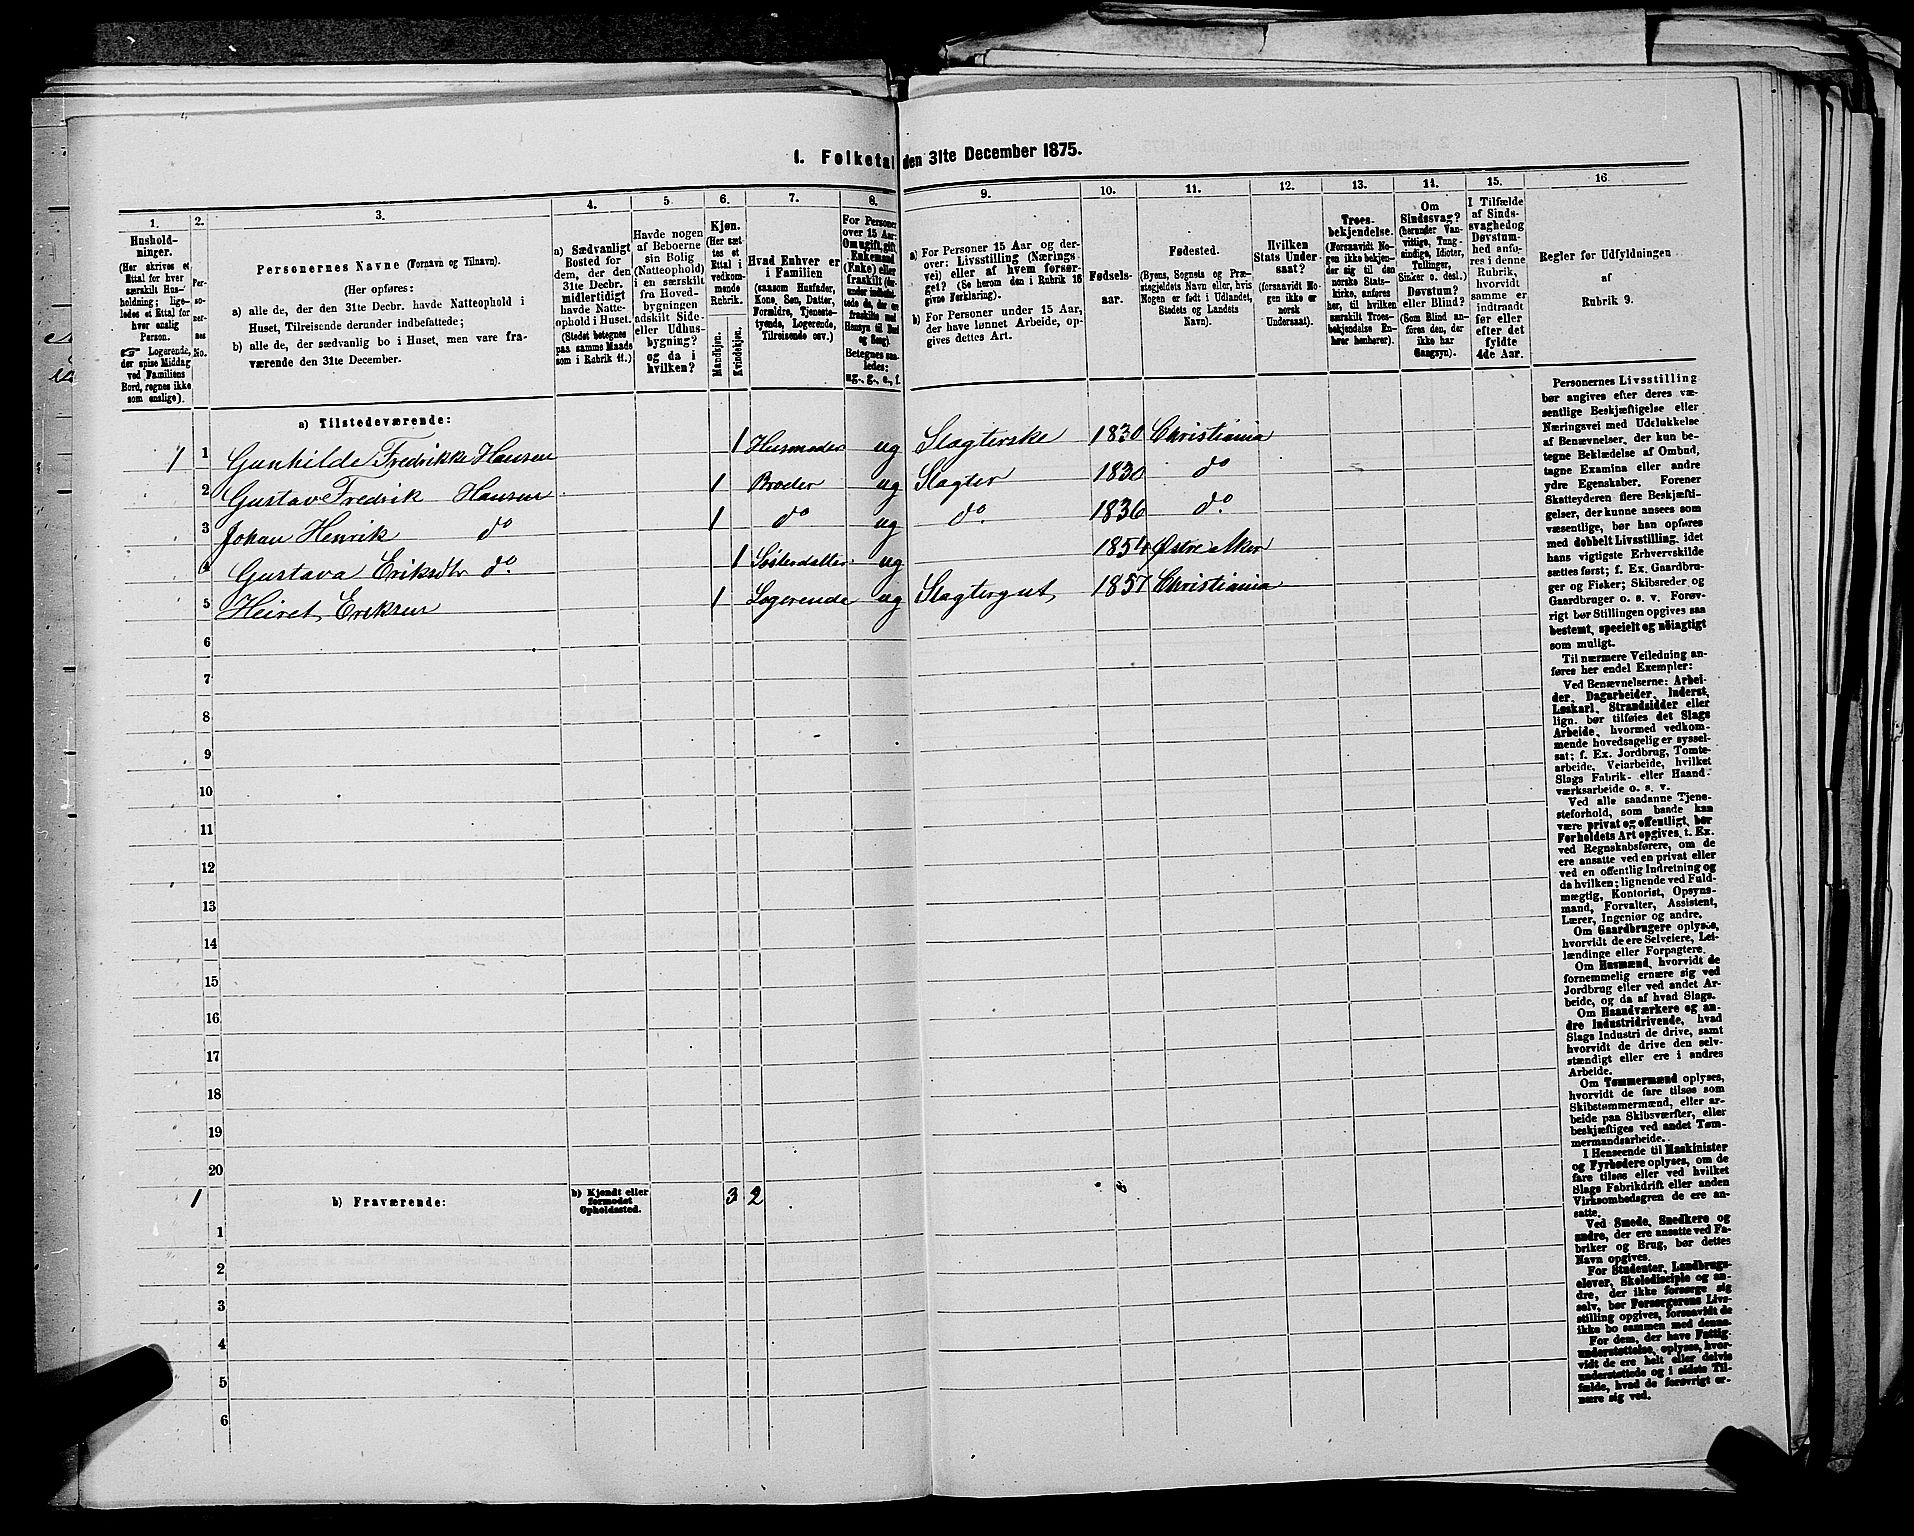 1. Folketal den 31te December 1875.
1.
2.
3.
4.
5.
6.
7.
8.
9.
10.
11.
12.
13.
14.
15.
16.
Hushold-
ninger.
(Her skrives et
Ettal for hver
særskilt Hus-
holdning; lige-
ledes et Ettal for
hver enslig
Person.
☞ Logerende,
der spise Middag
ved Familiens
Bord, regnes ikke
som enslige).
Per-
so-
ner-
nes
No.
Personernes Navne (Fornavn og Tilnavn).
(Her opføres:
a) alle de, der den 31te Decbr. havde Natteophold i
Huset, Tilreisende derunder indbefattede;
b) alle de, der sædvanlig bo i Huset, men vare fra-
værende den 31te December.
a) Sædvanligt
Bosted for
dem, der den
31te Decbr.
midlertidigt
havde Natte-
ophold i Huset.
(Stedet betegnes
paa samme Maade
som i Rubrik 11.)
Havde nogen
af Beboerne
sin Bolig
(Natteophold)
i en særskilt
fra Hoved-
bygningen
adskilt Side-
eller Udhus-
bygning?
og da i
hvilken?
Kjøn.
(Her sæt-
tes et
Ettal i
vedkom-
mende
Rubrik.
Mandkjøn.
Kvindekjøn.
Hvad Enhver er
i Familien
(saasom Husfader,
Kone, Søn, Datter,
Forældre, Tjeneste-
tyende, Logerende,
Tilreisende osv.)
For Personer
over 15 Aar:
Om ugift, gift,
Enkemand
(Enke) eller
fraskilt (der-
under indbefat-
tede de, der ere
fraskilte med
Hensyn til Bord
og Seng).
Betegnes saa-
ledes:
ug., g., e., f.
a) For Personer 15 Aar og der-
over: Livsstilling (Nærings-
vei) eller af hvem forsør-
get? (Se herom den i Rubrik 16
givne Forklaring).
b) For Personer under 15 Aar,
der have lønnet Arbeide, op-
gives dettes Art.
Fødsels-
aar.
Fødested.
(Byens, Sognets og Præ-
stegjeldets Navn eller, hvis
Nogen er født i Udlandet,
Stedets og Landets
Navn).
Hvilken
Stats Under-
saat?
(forsaavidt No-
gen ikke er
norsk
Undersaat).
Troes-
bekjendelse.
(Forsaavidt No-
gen ikke bekjen-
der sig til den
norske Stats-
kirke, anføres
her, til hvilken
særskilt Troes-
bekjendelse En-
hver henhører).
Om
Sindssvag?
(herunder Van-
vittige, Tung-
sindige, Idioter,
Tullinger,
Sinker o. desl.)
Døvstum?
eller Blind?
(Som Blind an-
føres den, der
ikke har
Gangsyn).
I Tilfælde
af Sinds-
svaghed og
Døvstum-
hed anfø-
res i denne
Rubrik,
hvorvidt
samme er
indtraadt
før eller
efter det
fyldte
4de Aar.
Regler for Udfyldningen
af
Rubrik 9.
a) Tilstedeværende:
1 1 Gunhilde Fredrikke Hansen 1 Husmoder ug Slagterske 1830 Christiania
2 Gustav Fredrik Hansen 1 Broder ug Slagter 1830 do
3 Johan Henrik do 1 do ug do. 1836 do.
4 Gustava Eriksdtr do. 1 Søsterdatter ug 1854 Østre Aker
5 Eriksen 1 Logerende ug Slagtergut 1857 Christiania
6
7
8
9
10
11
12
13
14
15
16
17
18
19
20
1 b) Fraværende: b) Kjendt eller
formodet
Opholdssted. 3 2
1
2
3
4
5
6
Personernes Livsstilling
bør angives efter deres væ-
sentlige Beskjæftigelse eller
Næringsvei med Udelukkelse
af Benævnelser, der kun be-
tegne Beklædelse af Ombud,
tagne Examina eller andre
ydre Egenskaber. Forener
Skatteyderen flere Beskjæfti-
gelser, der kunne ansees som
væsentlige, bør han opføres
med dobbelt Livsstilling, idet
hans vigtigste Erhvervskilde
sættes først; f. Ex. Gaardbru-
ger og Fisker; Skibsreder og
Gaardbruger o. s. v. Forøv-
rigt bør Stillingen opgives saa
bestemt, specielt og nøiagtigt
som muligt.
Til nærmere Veiledning an-
føres her endel Exempler:
Ved Benævnelserne: Arbei-
der, Dagarbeider, Inderst,
Løskarl, Strandsidder eller
lign. bør tilføies det Slags
Arbeide, hvormed vedkom-
mende hovedsagelig er syssel-
sat; f. Ex. Jordbrug, Tomte-
arbeide, Veiarbeide, hvilket
Slags Fabrik- eller Haand-
værksarbeide o. s. v.
Ved alle saadanne Tjene-
steforhold, som baade kan
være privat og offentligt, bør
Forholdets Art opgives, t. Ex.
ved Regnskabsførere, om de
ere ansatte ved en privat eller
ved en offentlig Indretning og
da hvilken; lignende ved Fuld-
mægtig, Kontorist, Opsyns-
mand, Forvalter, Assistent,
Lærer, Ingeniør og andre.
Om Gaardbrugere oplyses,
hvorvidt de ere Selveiere, Lei-
lændinge eller Forpagtere.
Om Husmænd, hvorvidt de
fornemmelig ernære sig ved
Jordbrug eller ved andet Ar-
beide, og da af hvad Slags.
Om Haandværkere og an-
dre Industridrivende, hvad
Slags Industri de drive, samt
hvorvidt de drive den selv-
stændigt eller ere i andres
Arbeide.
Om Tømmermænd oplyses,
hvorvidt de fare tilsøs som
Skibstømmermænd, eller ar-
beide paa Skibsværfter, eller
beskjæftiges ved andet Tøm-
mermandsarbeide.
I Henseende til Maskinister
og Fyrbødere oplyses, om de
fare tilsøs eller ved hvilket
Slags Fabrikdrift eller anden
Virksombedsgren de ere an-
satte.
Ved Smede, Snedkere og
andre, der ere ansatte ved Fa-
briker og Brug, bør dettes
Navn opgives.
For Studenter, Landbrugs-
elever, Skoledisciple og an-
dre, der ikke forsørge sig
selv, bør Forsørgerens Livs-
stilling opgives, forsaavidt de
ikke bo sammen med denne.
For dem, der have Fattig-
understøttelse, oplyses, hvor-
vidt de ere helt eller delvis
understøttede og i sidste Til-
fælde, hvad de forøvrigt er-
nære sig ved.